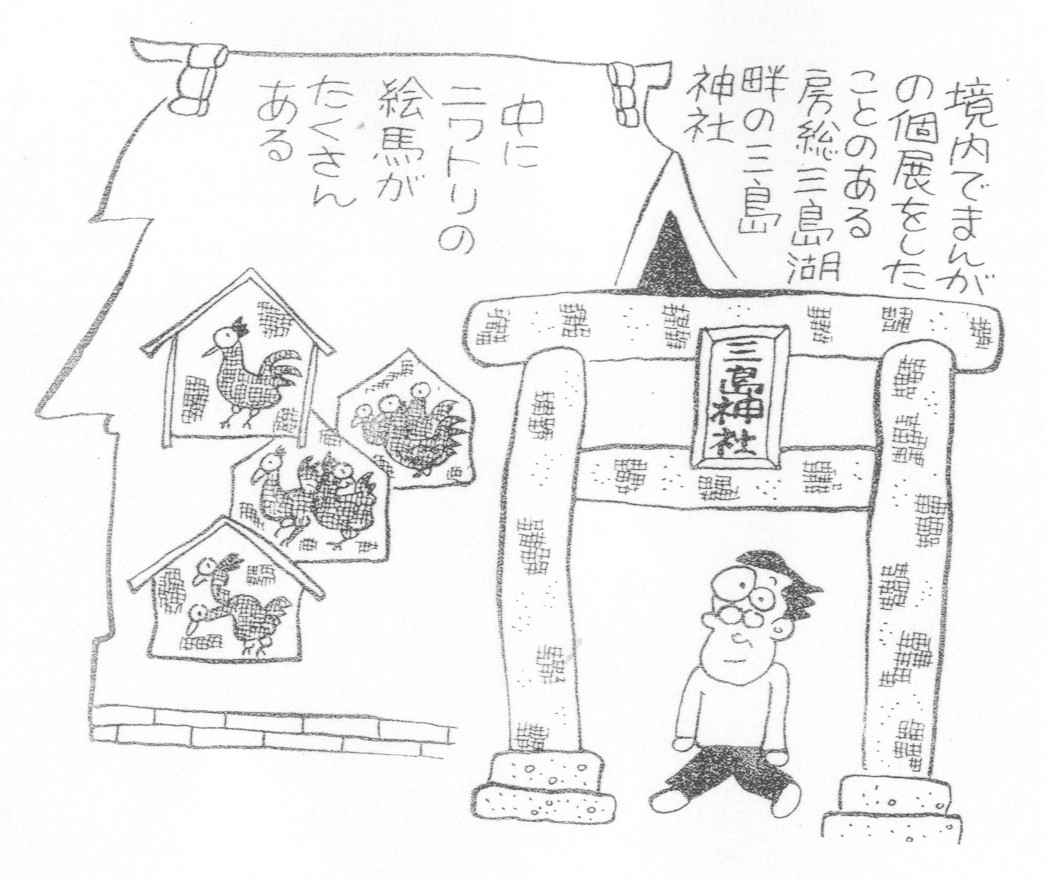 境内でまんが
の個展をした
ことのある
房総三島湖
畔の三島
神社
中に
ニワトリの
絵馬が
たくさん
ある
三島神社